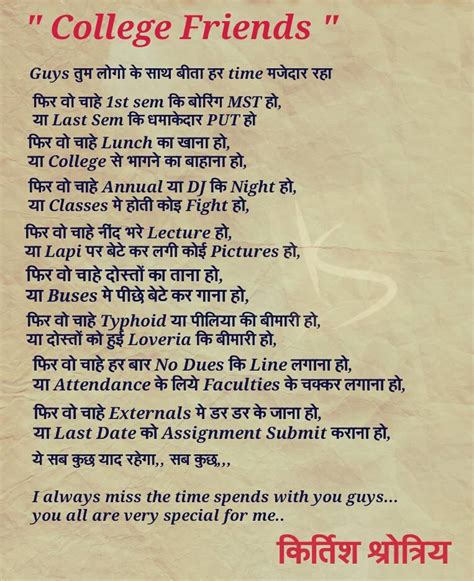 " College Friends "
Guys तुम लोगो के साथ बीता हर time मजेदार रहा
फिर वो चाहे 1st sem कि बोरिंग MST हो,
या Last Sem कि धमाकेदार PUT हो
फिर वो चाहे Lunch का खाना हो,
या College से भागने का बाहाना हो,
फिर वो चाहे Annual या DJ कि Night हो,
या Classes मे होती कोइ Fight हो,
फिर वो चाहे नींद भरे Lecture हो,
या Lapi पर बेटे कर लगी कोई Pictures हो,
फिर वो चाहे दोस्तों का ताना हो,
या Buses मे पीछे बेटे कर गाना हो,
फिर वो चाहे Typhoid या पीलिया की बीमारी हो,
या दोस्तों को हुई Loveria कि बीमारी हो,
फिर वो चाहे हर बार No Dues कि Line लगाना हो,
या Attendance के लिये Faculties के चक्कर लगाना हो,
फिर वो चाहे Externals मे डर डर के जाना हो,
या Last Date को Assignment Submit कराना हो,
ये सब कुछ याद रहेगा,, सब कुछ,,,
I always miss the time spends with you guys...
you all are very special for me..
किर्तिश श्रोत्रिय
KS